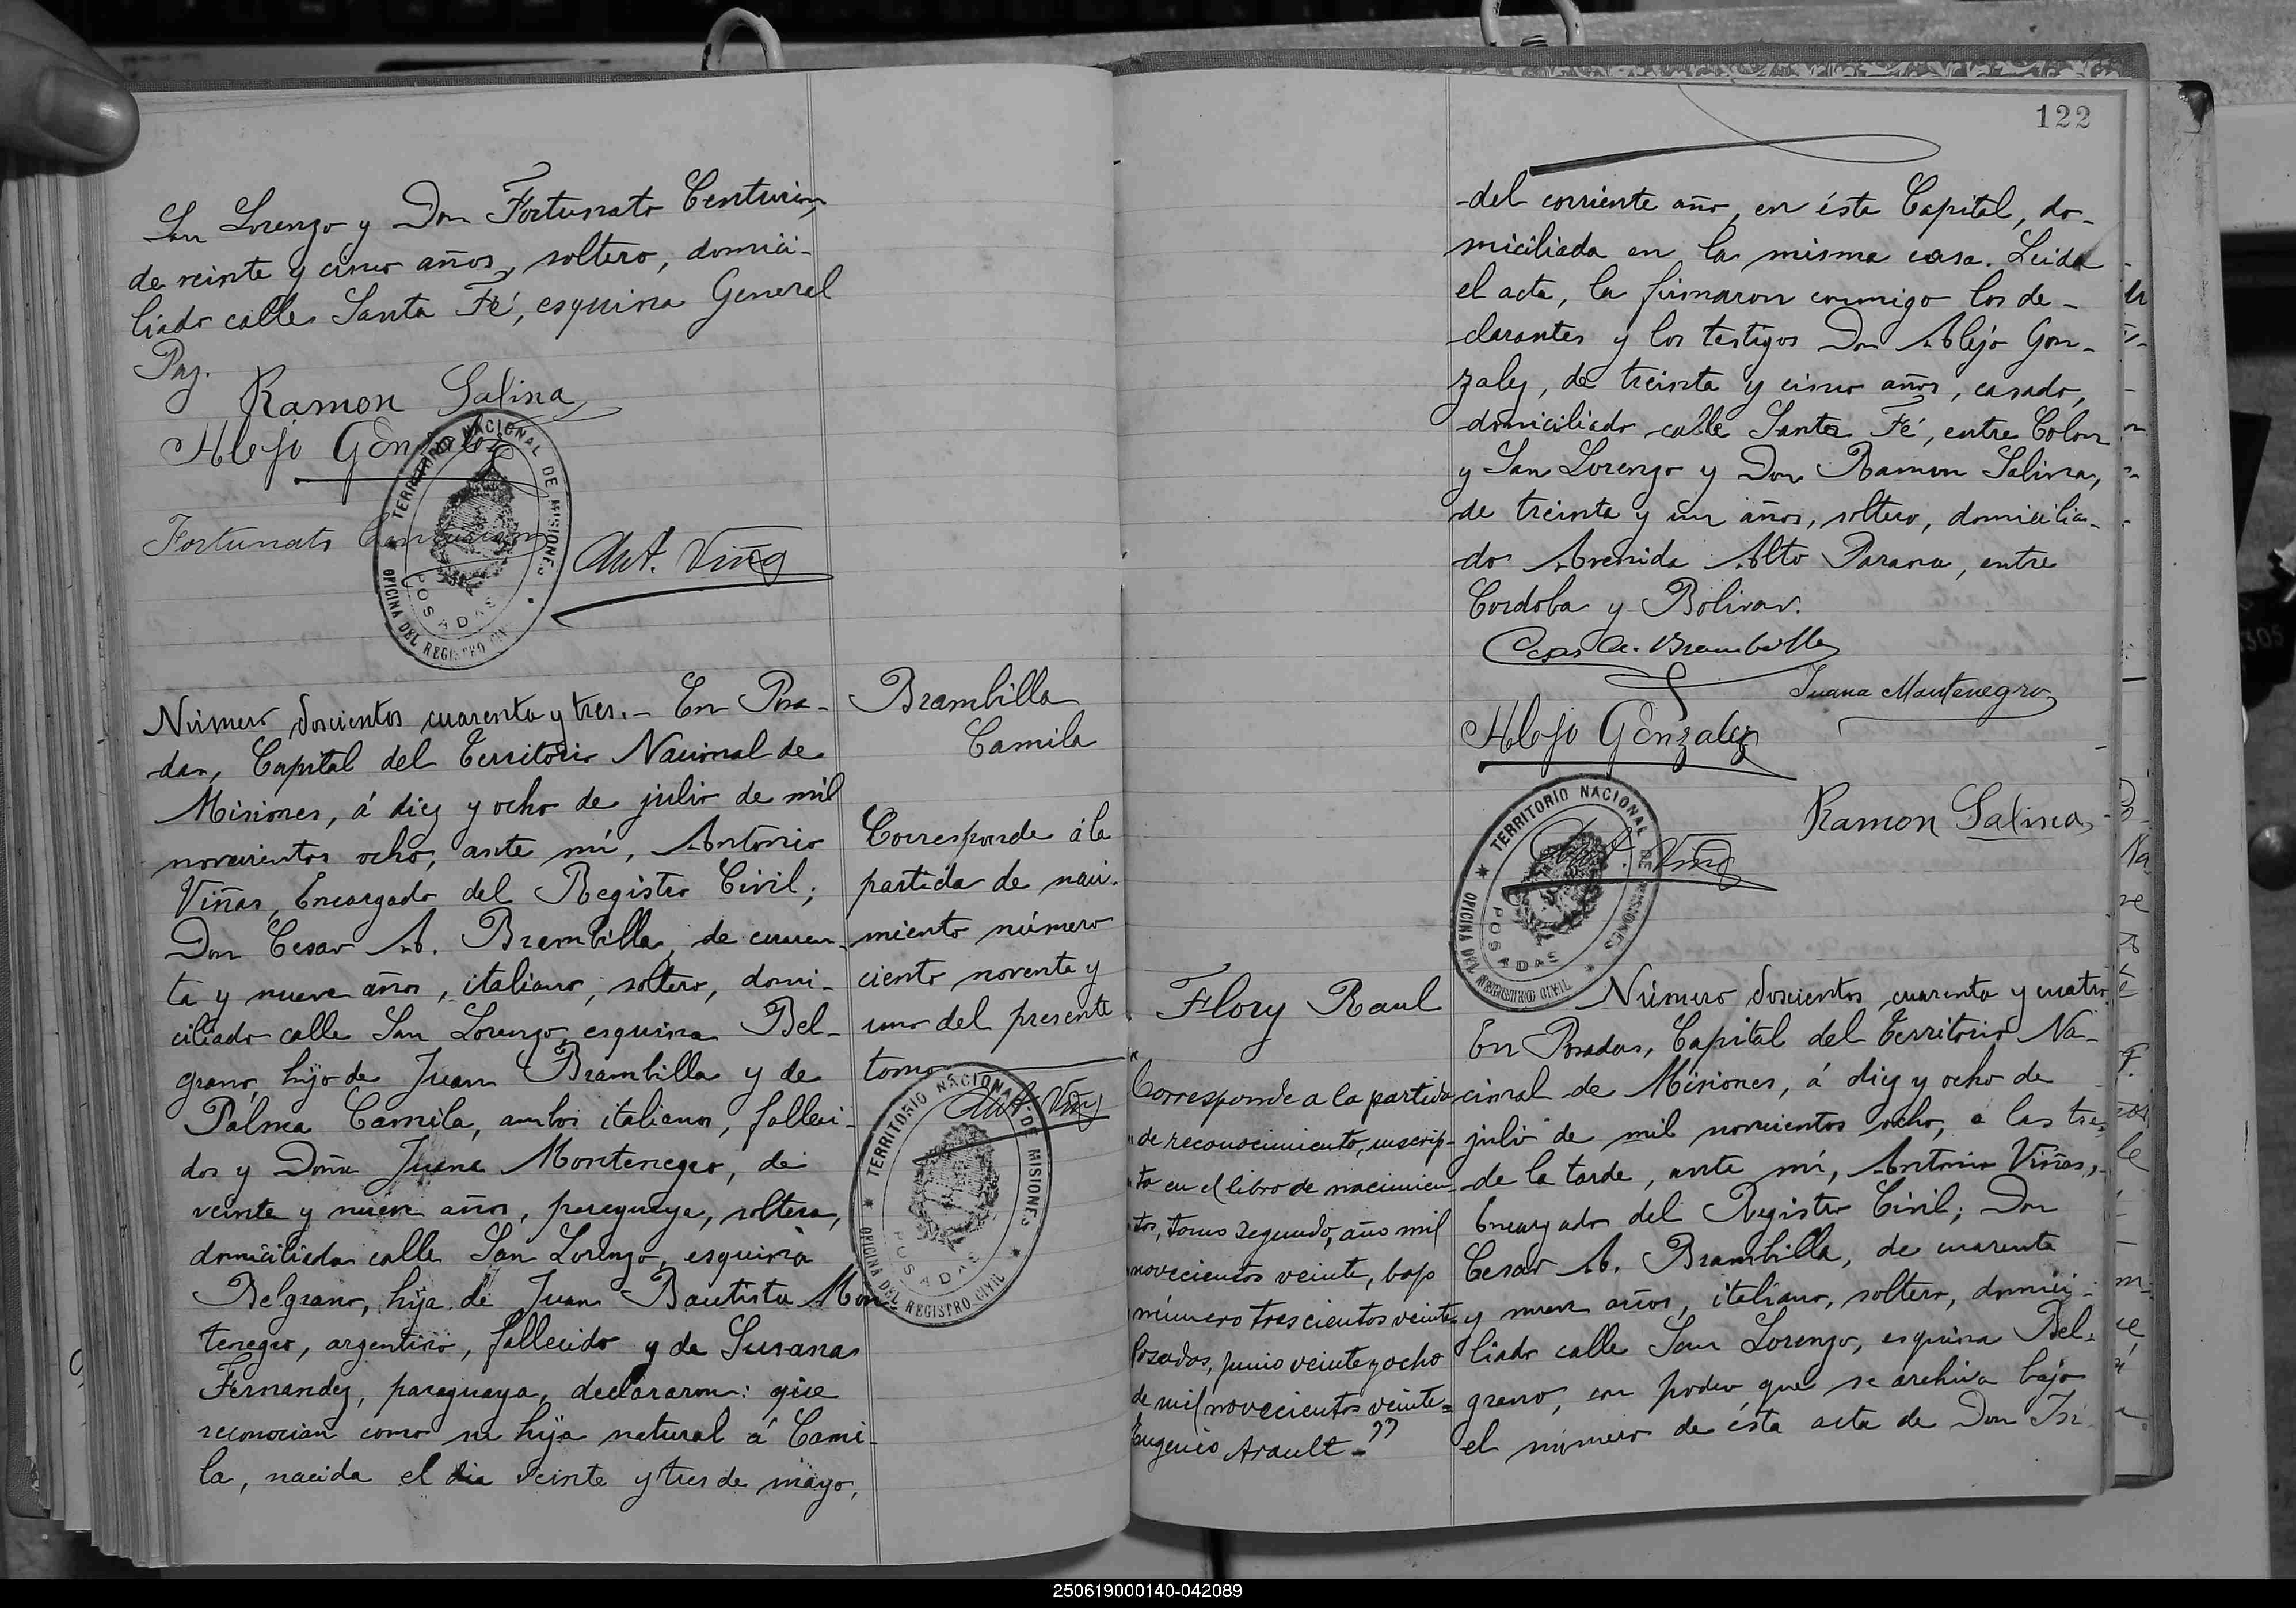 San Lorenzo y Don Fortunato Centurion,
de veinte y cinco años, soltero, domici-
liado calle Santa Fé, esquina General
Paz.
Ramon Salina
Alejo Gonzalez
Fortunato Centurion
Ant. Viñas
TERRITORIO NACIONAL DE MISIONES
POSADAS
OFICINA DEL REGISTRO CIVIL
Número doscientos cuarenta y tres. - En Posa-
das, Capital del Territorio Nacional de
Misiones, á diez y ocho de julio de mil
novecientos ocho, ante mí, Antonio
Viñas, Encargado del Registro Civil;
Don Cesar A. Brambilla, de cuaren-
ta y nueve años, italiano, soltero, domi-
ciliado calle San Lorenzo, esquina Bel-
grano, hijo de Juan Brambilla y de
Palma Camila, ambos italianos, falleci-
dos y Doña Juana Montenegro, de
veinte y nueve años, paraguaya, soltera,
domiciliada calle San Lorenzo, esquina
Belgrano, hija de Juan Bautista Mon
tenegro, argentino, fallecido y de Susana
Fernandez, paraguaya, declararon: que
reconocian como su hija natural á Cami-
la, nacida el dia veinte y tres de mayo,
Brambilla
Camila
Corresponde á la
partida de naci-
miento número
ciento noventa y
uno del presente
tomo
Ant. Viñas
TERRITORIO NACIONAL DE MISIONES
POSADAS
OFICINA DEL REGISTRO CIVIL
122
del corriente año, en ésta Capital, do-
miciliada en la misma casa. Leida
el acta, la firmaron conmigo los de-
clarantes y los testigos Don Alejo Gon-
zalez, de treinta y cinco años, casado,
domiciliado calle Santa Fé, entre Colon
y San Lorenzo y Don Ramon Salina,
de treinta y un años, soltero, domicilia-
do Avenida Alto Parana, entre
Cordoba y Bolivar.
Cesar A. Brambilla
Juana Montenegro
Alejo Gonzalez
Ramon Salina
Ant. Viñas
TERRITORIO NACIONAL DE MISIONES
POSADAS
OFICINA DEL REGISTRO CIVIL
Flory Raul
Corresponde a la partida
de reconocimiento, inscrip-
ta en el libro de nacimien-
tos, tomo segundo, año mil
novecientos veinte, bajo
número trescientos veinte
Posadas, junio veinte y ocho
de mil novecientos veinte=
Eugenio Arault-"
Número doscientos cuarenta y cuatro.
En Posadas, Capital del Territorio Na-
cional de Misiones, á diez y ocho de
julio de mil novecientos ocho, a las tres
de la tarde, ante mí, Antonio Viñas,
Encargado del Registro Civil; Don
Cesar A. Brambilla, de cuarenta
y nueve años, italiano, soltero, domici-
liado calle San Lorenzo, esquina Bel-
grano, con poder que se archiva bajo
el número de ésta acta de Don Isi
250619000140-042089